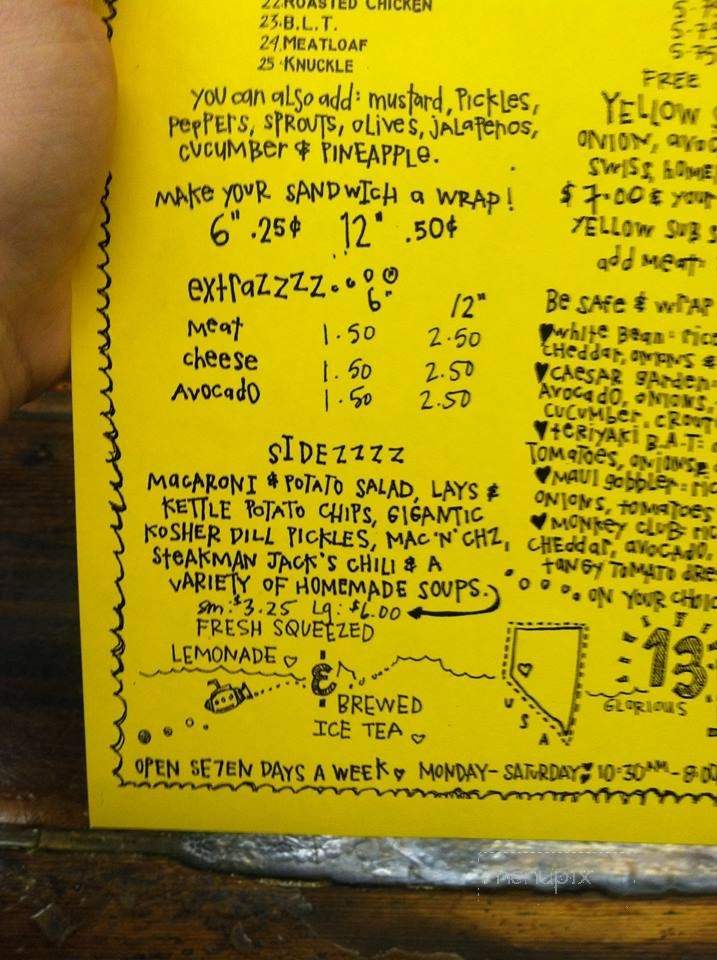 22. ROASTED CHICKEN
23. B.L.T.
24. MEATLOAF
25. KNUCKLE
you can also add: mustard, pickles,
peppers, sprouts, olives, jalapenos,
cucumber & pineapple.
MAKE YOUR SANDWICH a WRAP!
6" .25¢ 12" .50¢
extrazzzz....
6" 12"
Meat 1.50 2.50
cheese 1.50 2.50
Avocado 1.50 2.50
SIDEZZZZ
MACARONI & POTATO SALAD, LAYS &
KETTLE POTATO CHIPS, GIGANTIC
KOSHER DILL PICKLES, MAC 'N' CHZ,
STEAKMAN JACK'S CHILI & A
VARIETY OF HOMEMADE SOUPS.
sm: $3.25 Lg: $6.00
FRESH SQUEEZED
LEMONADE ♡
&
BREWED
ICE TEA ♡
USA
OPEN SE7EN DAYS A WEEK♥ MONDAY - SATURDAY: 10:30AM - 8:00
FREE
YELLOW S
ONION, avoc
SWISS, HOME
$7.00 & your
YELLOW SUB S
add meat:
Be SAFE & WRAP
♥white Bean: rice
CHeddar, onions &
♥CAESAR GARDEN:
AVOCADO, ONIONS,
CUCUMBER, CROUT
♥teriyaki B.A.T:
TOMATOES, ONIONS &
♥MAUI gobbler: ric
ONIONS, tomatoes
♥MONKEY CLUB: ric
CHEddar, AVOCADO,
tangy TOMATO dre
ON YOUR CHOIC
13
GLORIOUS
menupix